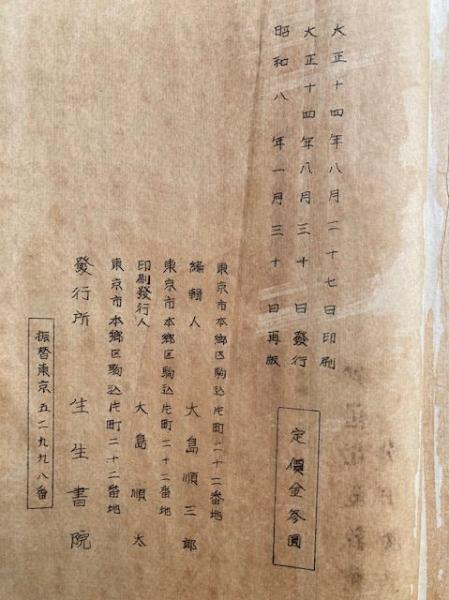 大正十四年八月二十七日印刷
大正十四年八月三十日發行
昭和八年一月三十日再版
定價金参圓
東京市本郷区駒込片町二十二番地
編輯人　大島順三郎
東京市本郷区駒込片町二十二番地
印刷發行人　大島順太
東京市本郷区駒込片町二十二番地
發行所　生生書院
振替東京五二九九八番